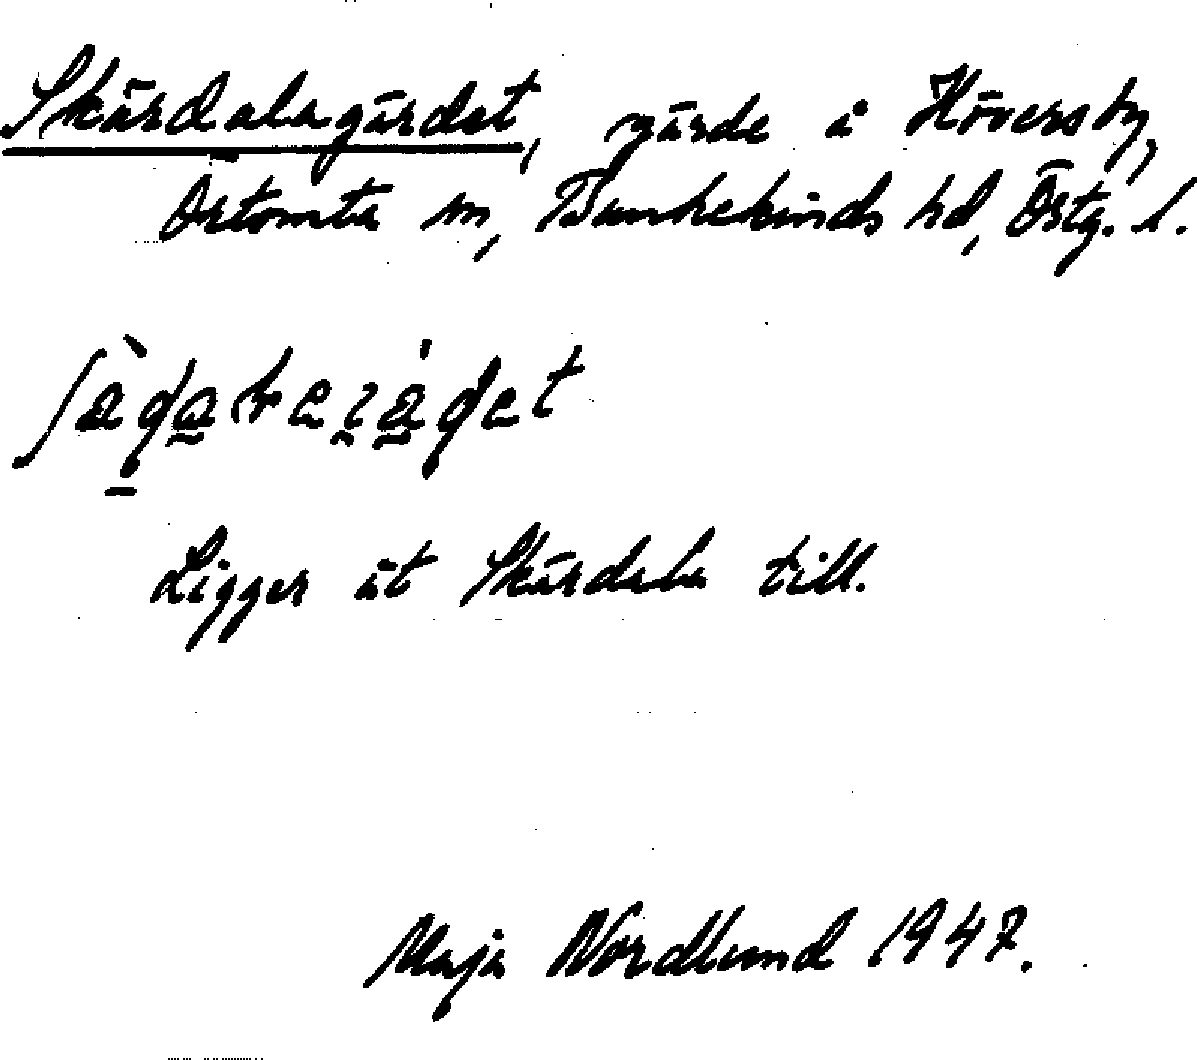 Skärdalagärdet, gärde å Höversby,
Örtomta sn, Bankekinds hd, Östg. l.
Ligger åt Skärdala till.
Maja Nordlund 1947.